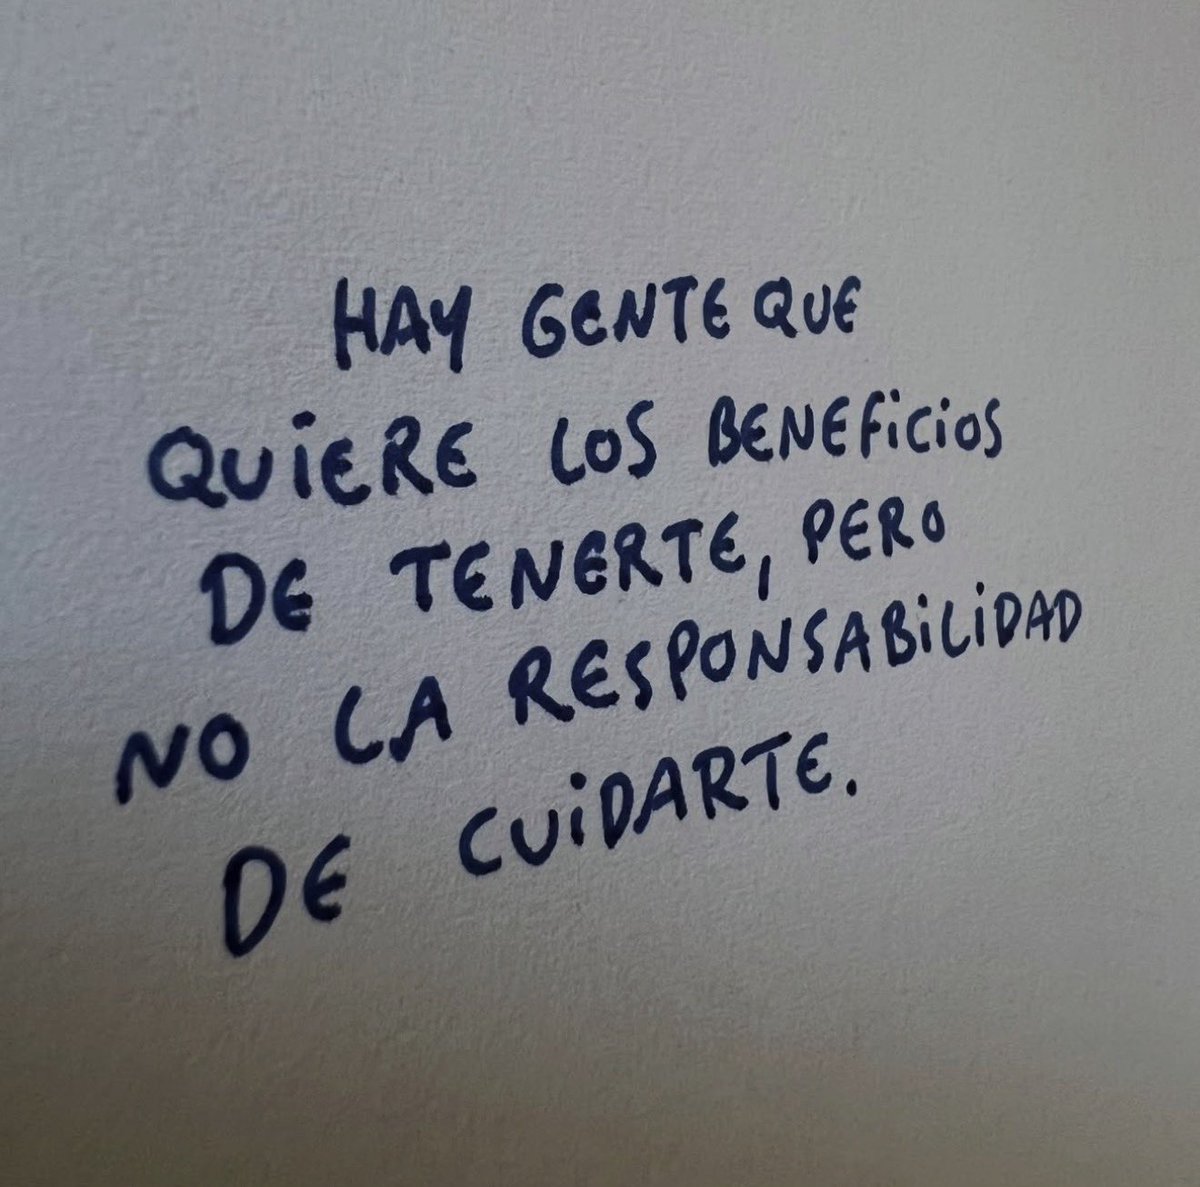 HAY GENTE QUE
QUIERE LOS BENEFICIOS
DE TENERTE, PERO
NO LA RESPONSABILIDAD
DE CUIDARTE.